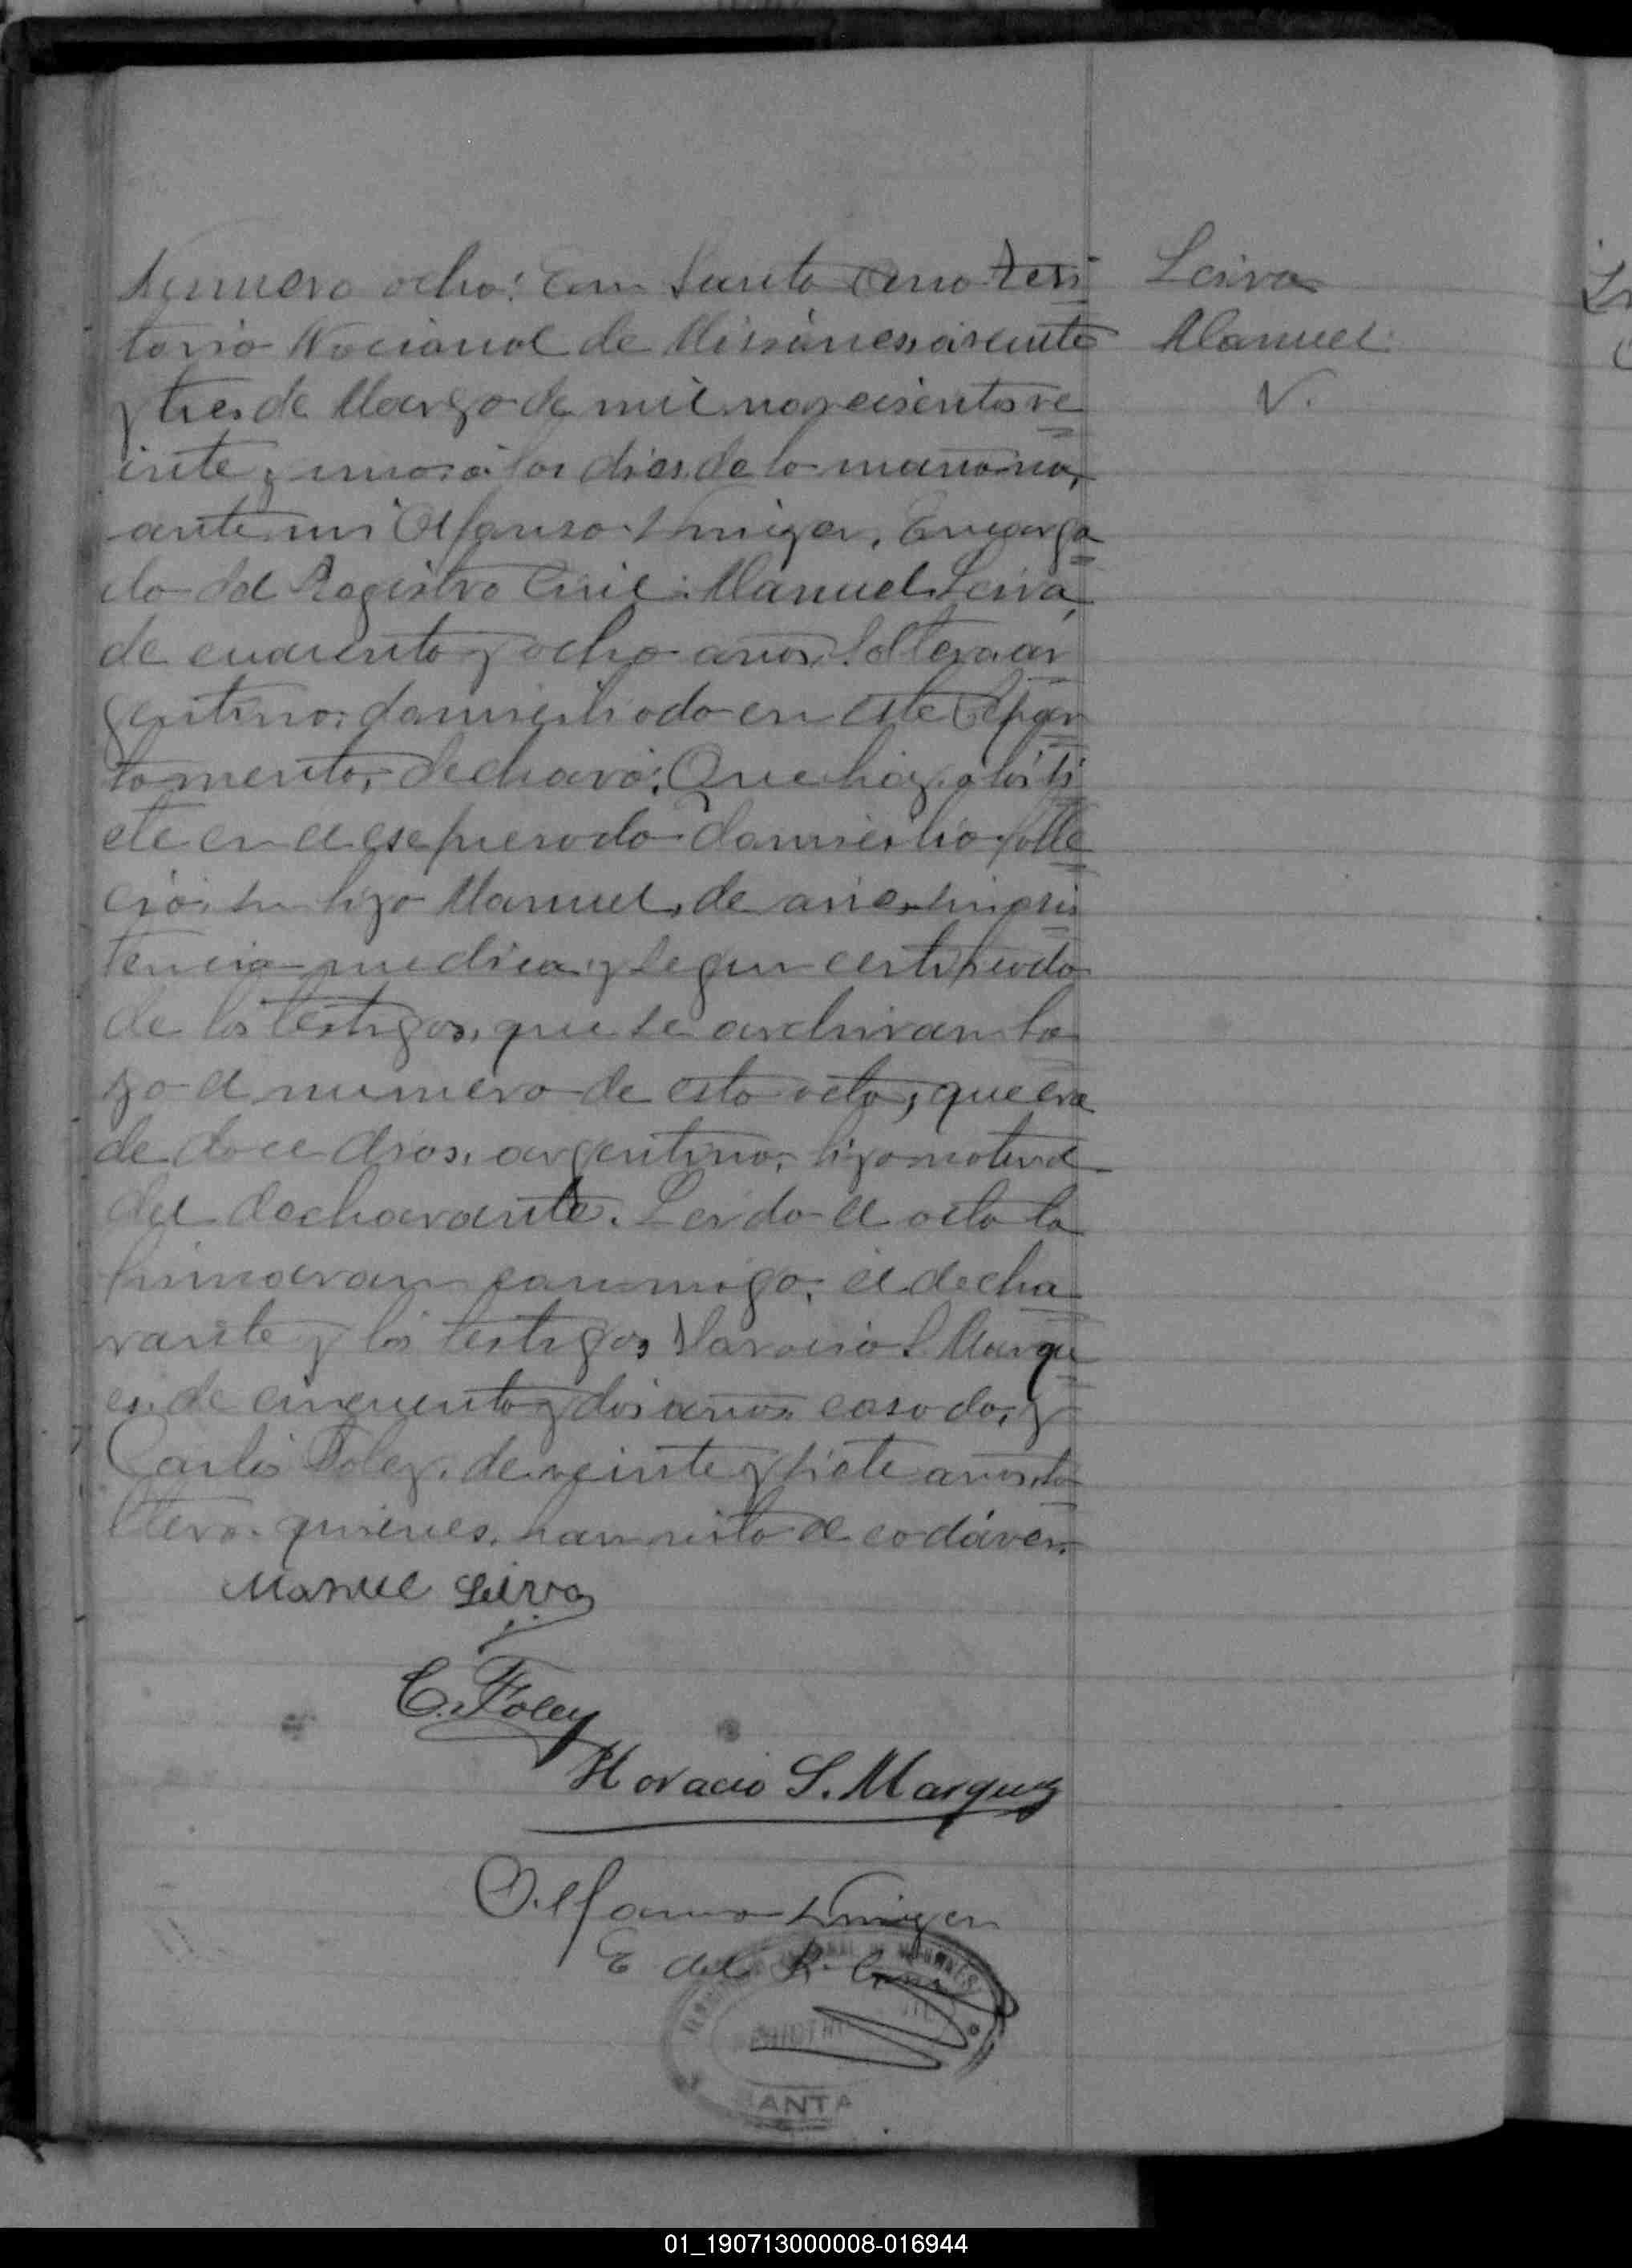 Numero ocho: En Santa Ana Terri
torio Nacional de Misiones a veinte
y tres de Marzo de mil novecientos ve
inte y uno a las dies de la mañana,
ante mi Alfonso Encarga
do del Registro Civil: Manuel Leiva,
de cuarenta y ocho años, soltero ar
gentino, domiciliado en este Depar
tamento, declaró: Que hoy, a las si
ete en el espresado domicilio falle
ció, su hijo Manuel, de asis
tencia medica y segun certificado
de los testigos, que se archivan ba
jo el numero de esta acta, que era
de doce dias, argentino, hijo natural
del declarante. Leida el acta la
firmaran conmigo, el decla
rante y los testigos Horacio S. Marqu
es, de cincuenta y dos años casado, y
Carlos Foley, de veinte y siete años, so
ltero, quienes, han visto el cadáver.
Leiva
Manuel
V.
Manuel Leiva
C. Foley
Horacio S. Marquez
Alfonso
E del R. Civil
ANTA
01_190713000008-016944